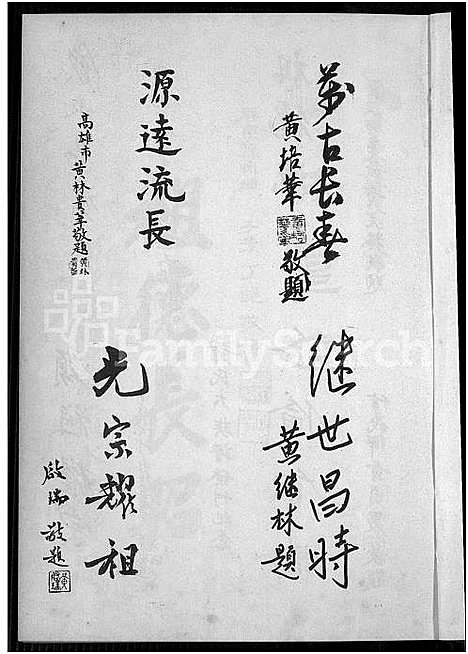 萬古長春
黃培華
敬題
继世昌時
黃继林題
源遠流長
高雄市黃林貴華敬題
光宗耀祖
啟瑞敬題
FamilySearch